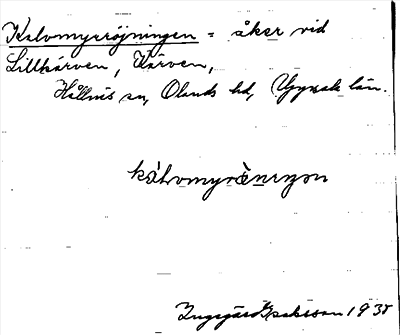 Kalvmyrröjningen = åker vid
Lillkärven, Kärven,
Hållnäs sn, Olands hd, Uppsala län.
Ingegärd Isaksson 1935